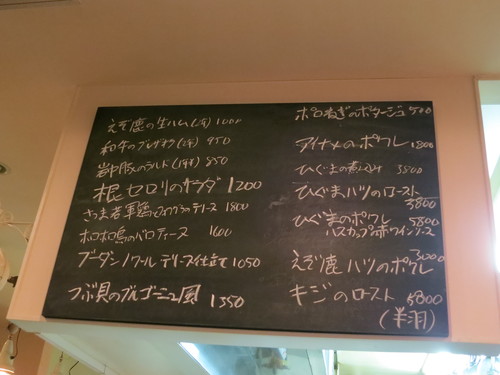 えぞ鹿の生ハム 1000
和牛のブレザオラ 950
岩中豚のラルド 850
根セロリのサラダ 1200
さつま若軍鶏とフォワグラのテリーヌ 1800
ホロホロ鳥のバロティーヌ 1600
ブーダンノワール テリーヌ仕立て 1050
つぶ貝のブルゴーニュ風 1350
ポロねぎのポタージュ 500
アイナメのポワレ 1800
ひぐまの煮込み 3800
ひぐまハツのロースト
3800
ひぐまのポワレ 5800
ハスカップの赤ワインソース
えぞ鹿ハツのポワレ 3000
キジのロースト 5800
(半羽)